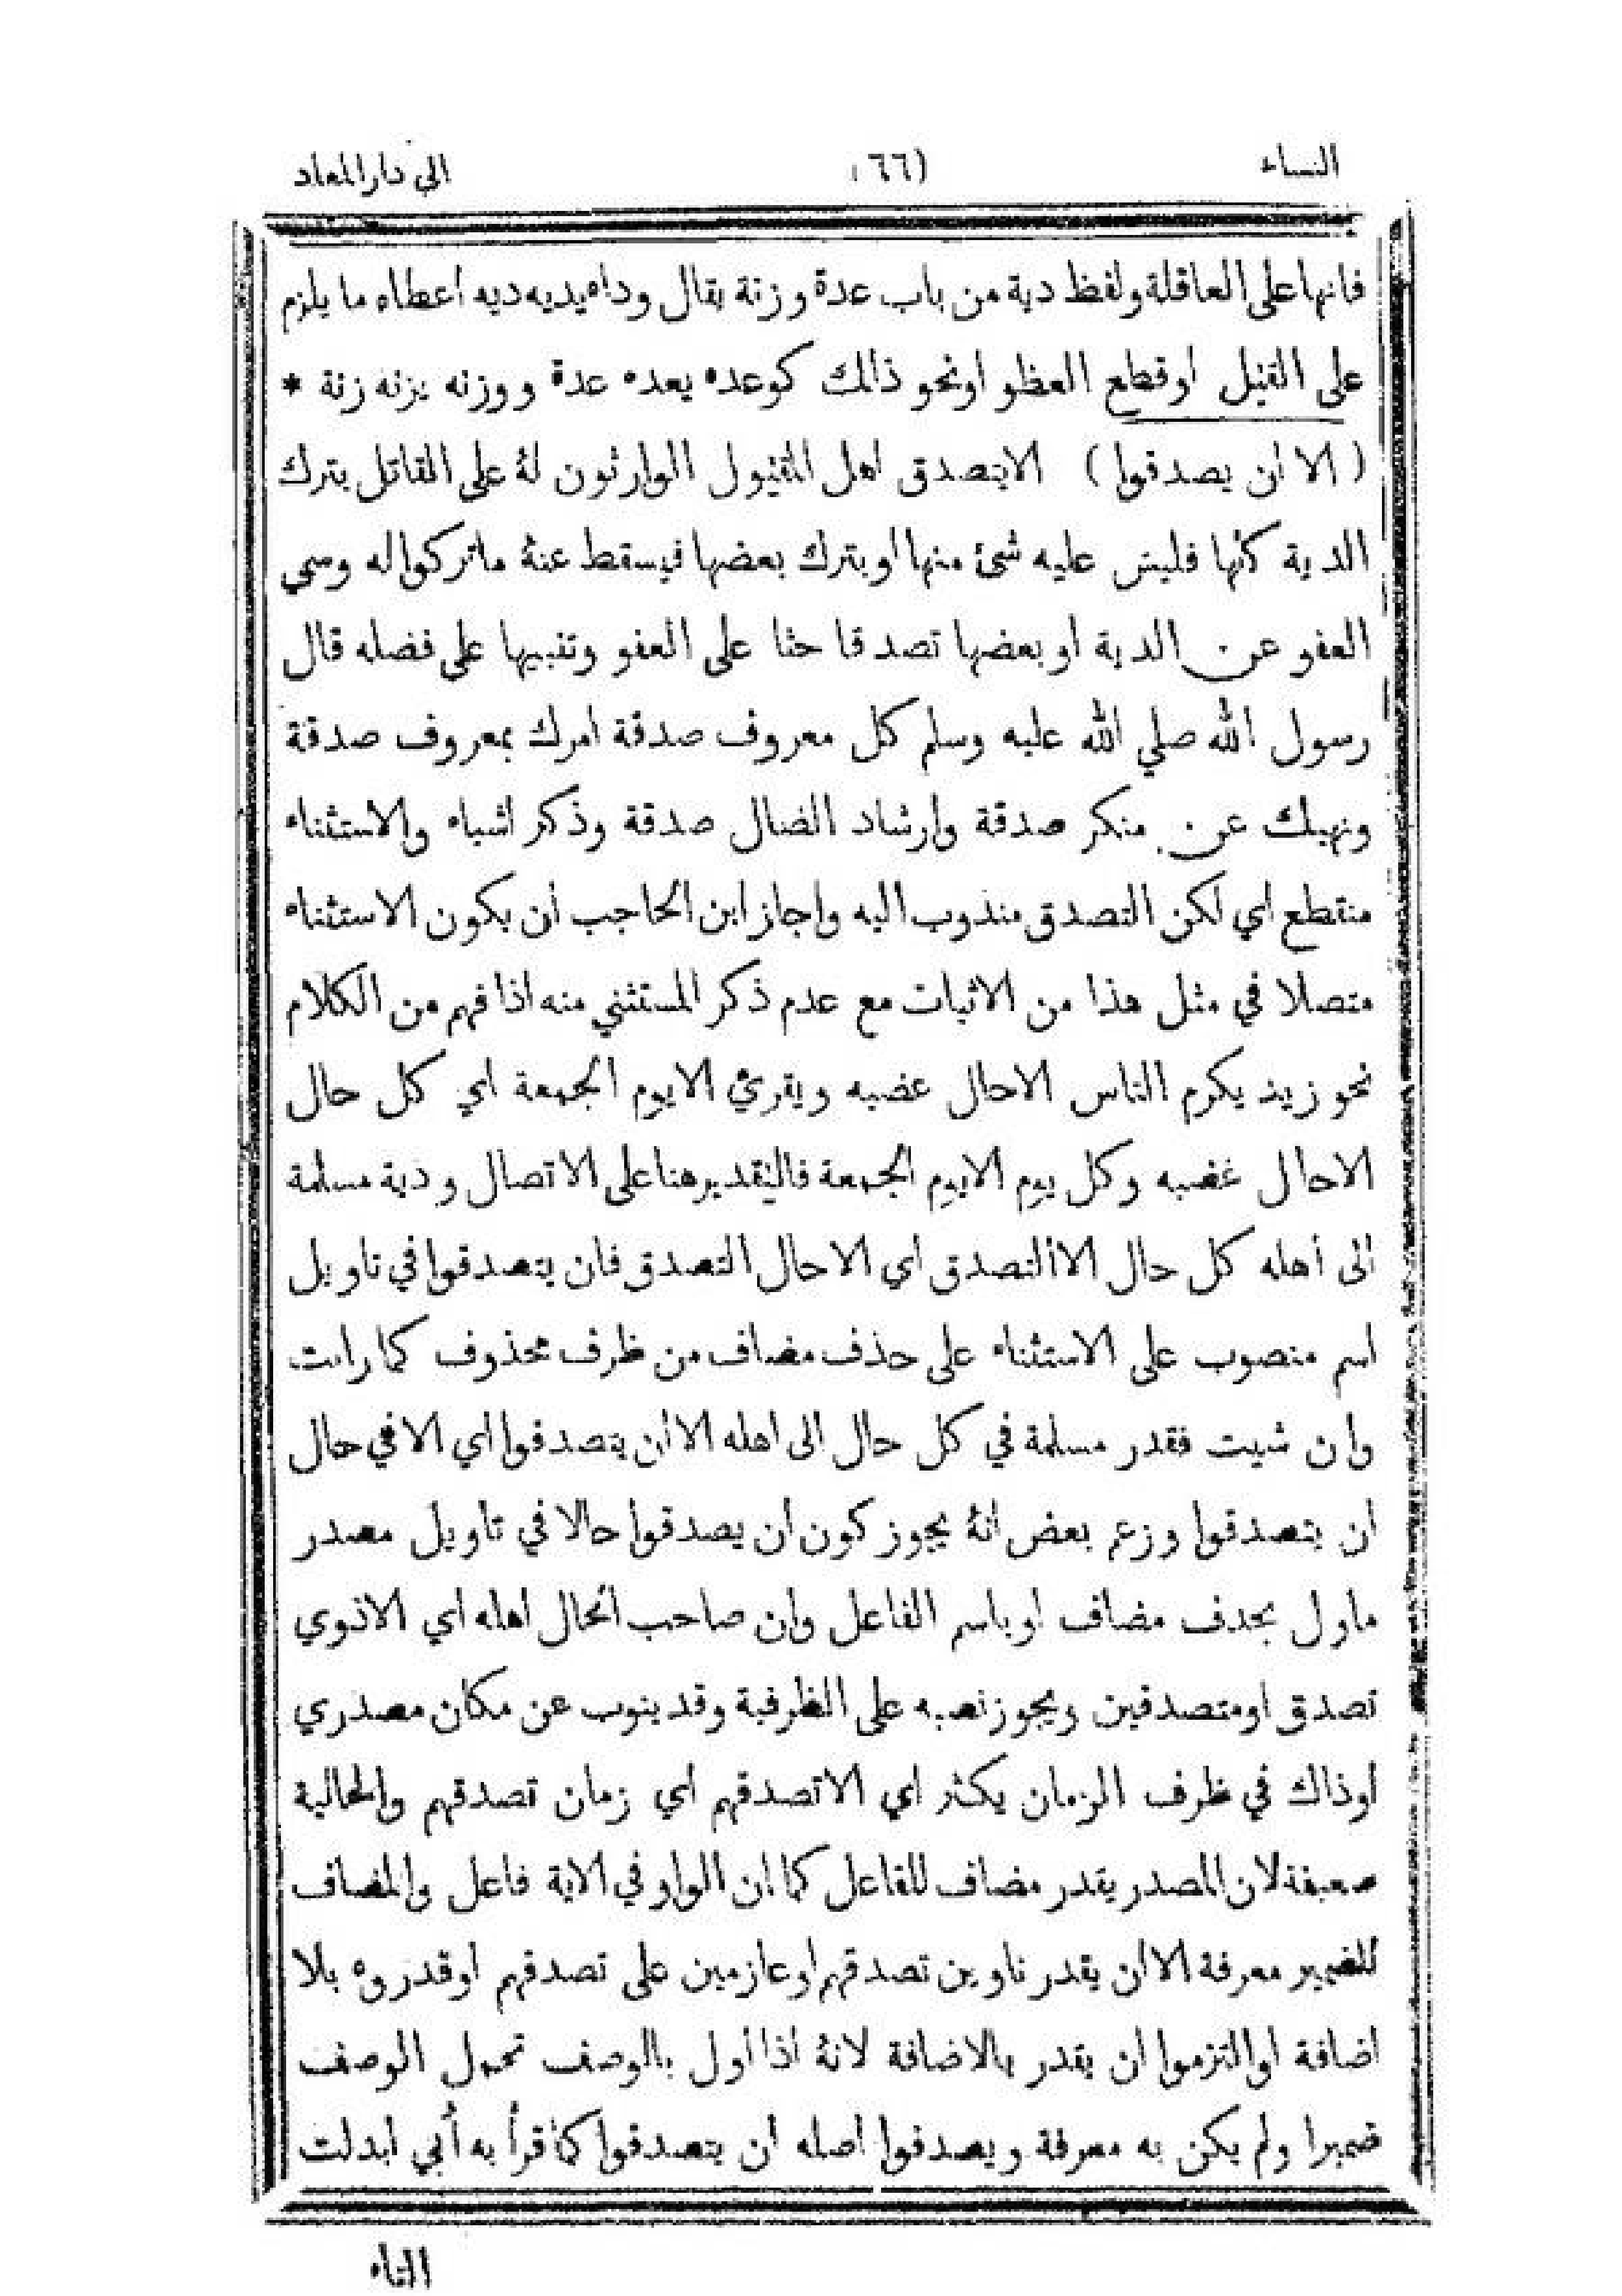 النساء (٦٦) الى دار المعاد
فانها على العاقلة ولفظ دية من باب عدة وزنة يقال وداه يديه ديه اعطاه ما يلزم
على القتيل اوقطع العظو اونحو ذالك كوعده يعده عدة ووزنه يزنه زنة *
(الا ان يصدقوا) الا يتصدق اهل المقتول الوارثون له على القاتل بترك
الدية كلها فليس عليه شئ منها او بترك بعضها فيسقط عنه ما تركوا له وسمي
العفو عن الدية او بعضها تصدقا حثا على العفو وتنبيها على فضله قال
رسول الله صلي الله عليه وسلم كل معروف صدقة امرك بمعروف صدقة
ونهيك عن منكر صدقة وارشاد الضال صدقة وذكر اشياء والاستثناء
منقطع اي لكن التصدق مندوب اليه واجاز ابن الحاجب أن يكون الاستثناء
متصلا في مثل هذا من الاثبات مع عدم ذكر المستثني منه اذا فهم من الكلام
نحو زيد يكرم الناس الاحال غضبه ويقرئ الايوم الجمعة اي كل حال
الاحال غضبه وكل يوم الايوم الجمعة فالتقدير هنا على الاتصال ودية مسلمة
الى أهله كل حال الا التصدق اي الاحال التصدق فان يتصدقوا في تاويل
اسم منصوب على الاستثناء على حذف مضاف من ظرف محذوف كما رايت
وان شيت فقدر مسلمة في كل حال الى اهله الا أن يتصدقوا أي الا في حال
ان يتصدقوا وزعم بعض انه يجوز كون ان يصدقوا حالا في تاويل مصدر
ماول بحذف مضاف او باسم الفاعل وان صاحب الحال اهله اي الاذوي
تصدق او متصدقين ويجوز نصبه على الظرفية وقد ينوب عن مكان مصدري
اوذاك في ظرف الزمان يكثر اي الا تصدقهم اي زمان تصدقهم والحالية
ضعيفة لان المصدر يقدر مضاف للفاعل كما ان الواو في الاية فاعل والمضاف
للضمير معرفة الا ان يقدر ناوين تصدقهم او عازمين على تصدقهم اوقدروه بلا
اضافة او التزموا ان يقدر بالاضافة لانه اذا أول بالوصف تحمل الوصف
ضميرا ولم يكن به معرفة ويصدقوا اصله ان يتصدقوا كما قرأ به أُبي ابدلت
التاء